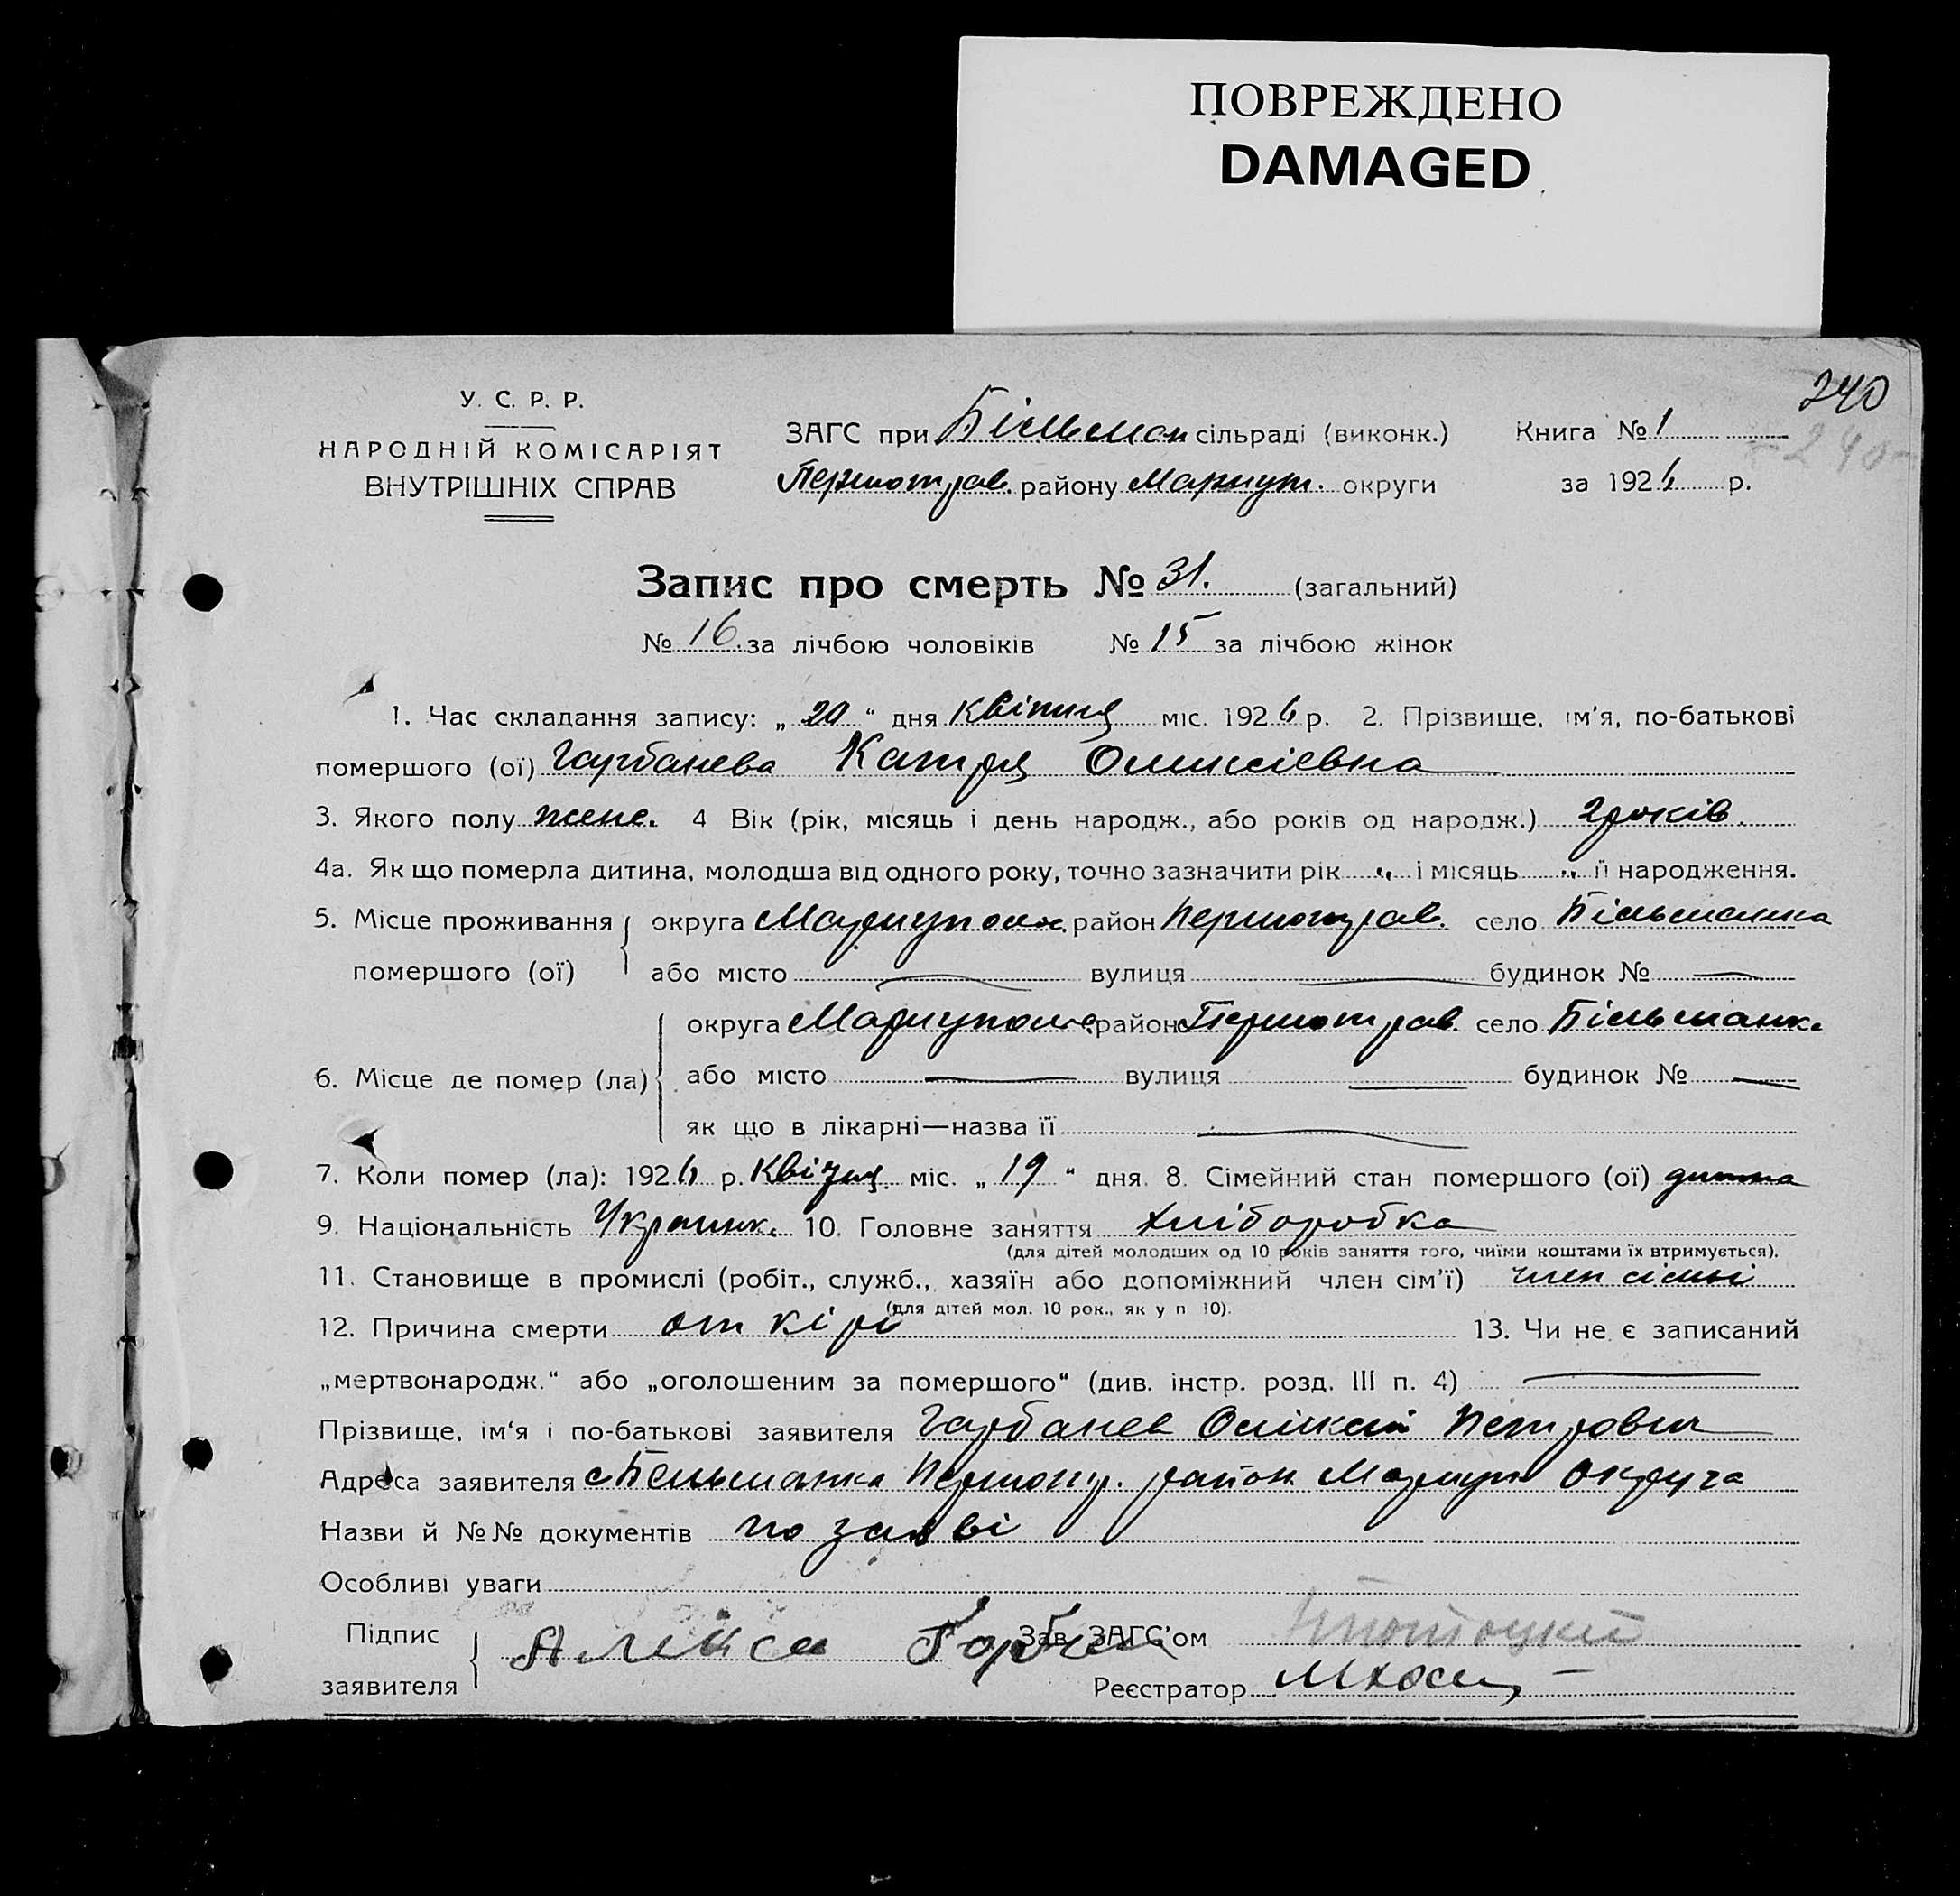 ПОВРЕЖДЕНО
DAMAGED
240
У. С. Р. Р.
НАРОДНІЙ КОМІСАРІЯТ
ВНУТРІШНІХ СПРАВ
ЗАГС при Більман сільраді (виконк.) Книга № 1
240
Першотрав. району Маріуп. округи за 1926 р.
Запис про смерть № 31. (загальний)
№ 16. за лічбою чоловіків № 15 за лічбою жінок
1. Час складання запису: „ 20 “ дня Квітня міс. 1926 р. 2. Прізвище, ім'я, по-батькові
помершого (ої) Гарбанева Катря Олексієвна
3. Якого полу жене. 4 Вік (рік, місяць і день народж., або років од народж.) 2 років.
4а. Як що померла дитина, молодша від одного року, точно зазначити рік „ і місяць „ її народження.
5. Місце проживання округа Маріупольс. район Першотрав. село Більманка
помершого (ої) або місто — вулиця — будинок № —
округа Маріупольс. район Першотрав. село Більманка
6. Місце де помер (ла) або місто — вулиця — будинок № —
як що в лікарні—назва її —
7. Коли помер (ла): 1926 р. Квітня міс. „ 19 “ дня. 8. Сімейний стан помершого (ої) дитина
9. Національність Украинк. 10. Головне заняття хліборобка
(для дітей молодших од 10 років заняття того, чиїми коштами їх втримується).
11. Становище в промислі (робіт., служб., хазяїн або допоміжний член сім'ї) член сімьі
(для дітей мол. 10 рок., як у п 10).
12. Причина смерти от кірі 13. Чи не є записаний
„мертвонародж.“ або „оголошеним за помершого“ (див. інстр. розд. III п. 4) —
Прізвище, ім'я і по-батькові заявителя Гарбанев Олексій Петрович
Адреса заявителя с Бельманка Першотр. район Маріуп округа
Назви й №№ документів по заяві
Особливі уваги
Підпис
заявителя Алекса
Зав. ЗАГС'ом
Реєстратор